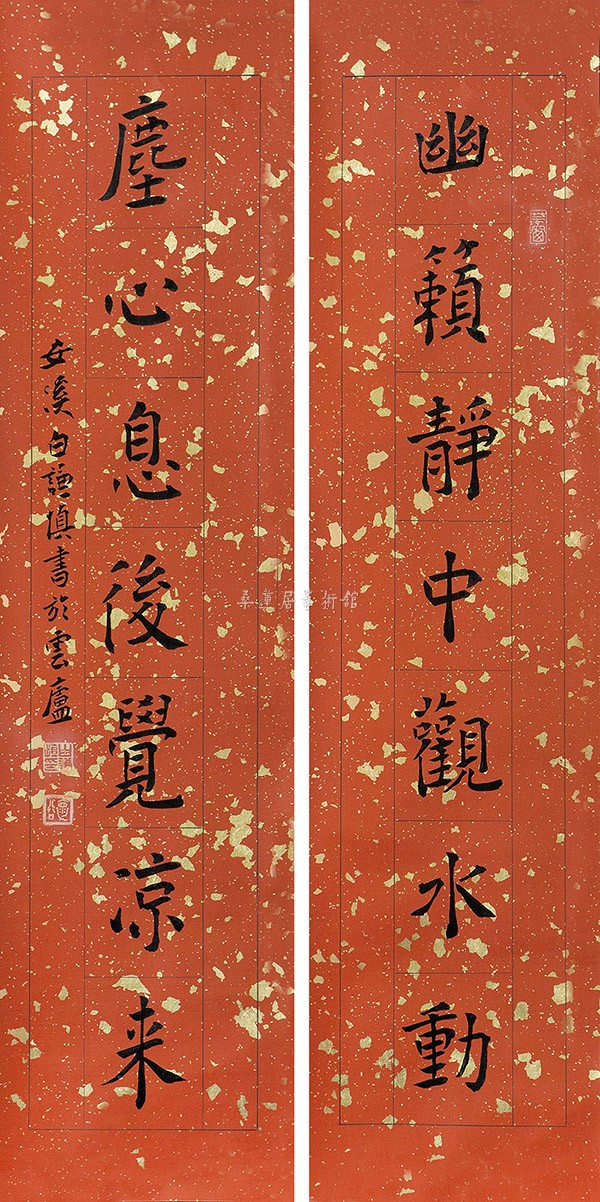 幽籟靜中觀水動
塵心息後覺凉来
安溪白謙慎書於雲廬
桑蓮居藝術館